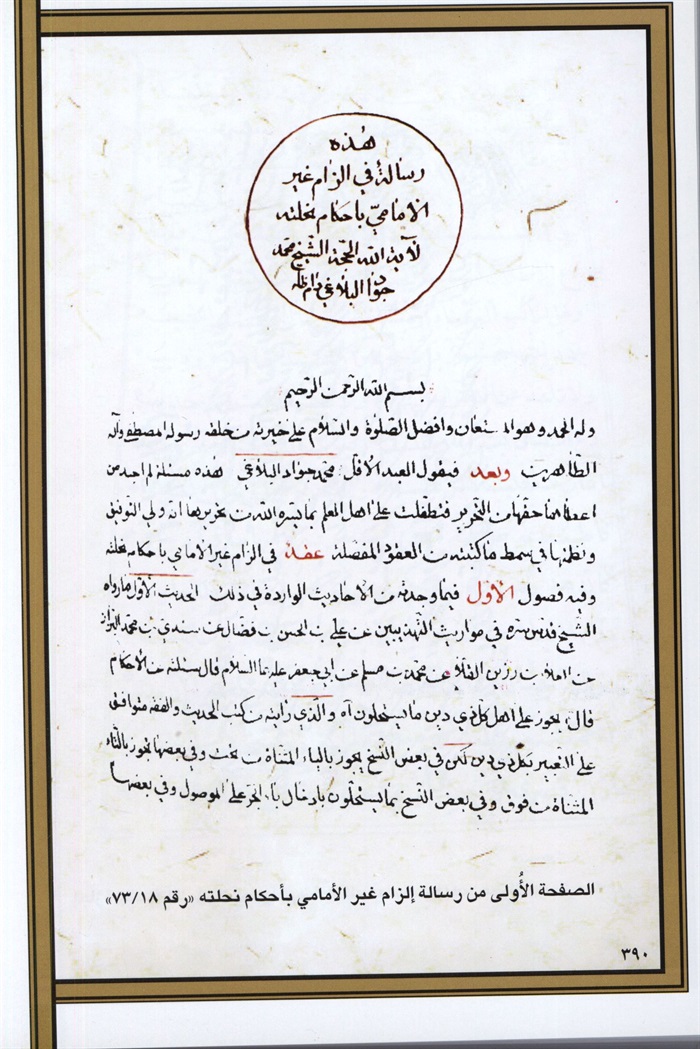 هذه
رسالة في الزام غير
الامامي باحكام نحلته
لآية الله الحجة الشيخ محمد
جواد البلاغي دام ظله
بسم الله الرحمن الرحيم
وله الحمد وهو المستعان وافضل الصلوة والسلام على خيرته من خلقه رسوله المصطفى وآله
الطاهرين وبعد فيقول العبد الاقل محمد جواد البلاغي هذه مسئلة لم اجد من
اعطاها حقها من التحرير فتطفلت على اهل العلم بما يسره الله من تحريرها انه ولي التوفيق
ونظمتها في سمط ما كتبته من العقود المفصلة عقد في الزام غير الامامي باحكام نحلته
وفيه فصول الاول فيما وجدته من الاحاديث الواردة في ذلك الحديث الاول ما رواه
الشيخ قدس سره في مواريث التهذيبين عن علي بن الحسن بن فضال عن سندي بن محمد البزاز
عن العلاء بن رزين القلاء عن محمد بن مسلم عن ابي جعفر عليهما السلام قال سئلته عن الاحكام
قال يجوز على اهل كل ذي دين ما يستحلون اه والذي رايته من كتب الحديث والفقه متوافق
على التعبير بكل ذي دين لكن في بعض النسخ يجوز بالياء المثناة من تحت وفي بعضها تجوز بالتاء
المثناة من فوق وفي بعض النسخ بما يستحلون بادخال باء الجر على الموصول وفي بعضها
الصفحة الأُولى من رسالة إلزام غير الأمامي بأحكام نحلته «رقم ٧٣/١٨»
٣٩٠